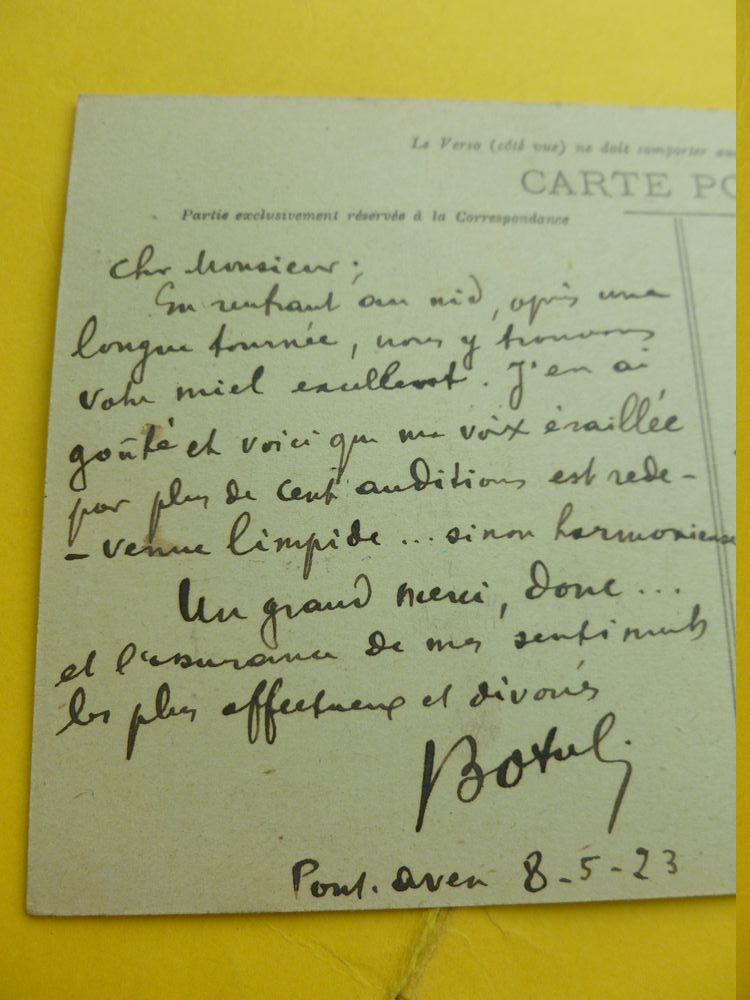 Le Verso (côté vue) ne doit comporter au
CARTE PO
Partie exclusivement réservée à la Correspondance
Cher Monsieur ;
En rentrant au nid, après une
longue tournée, nous y trouvons
votre miel excellent. J'en ai
goûté et voici que ma voix éraillée
par plus de cent auditions est rede-
-venue limpide ... sinon harmonieuse
Un grand merci, donc ...
et l'assurance de mes sentiments
les plus affectueux et dévoués
Botrel
Pont-aven 8-5-23